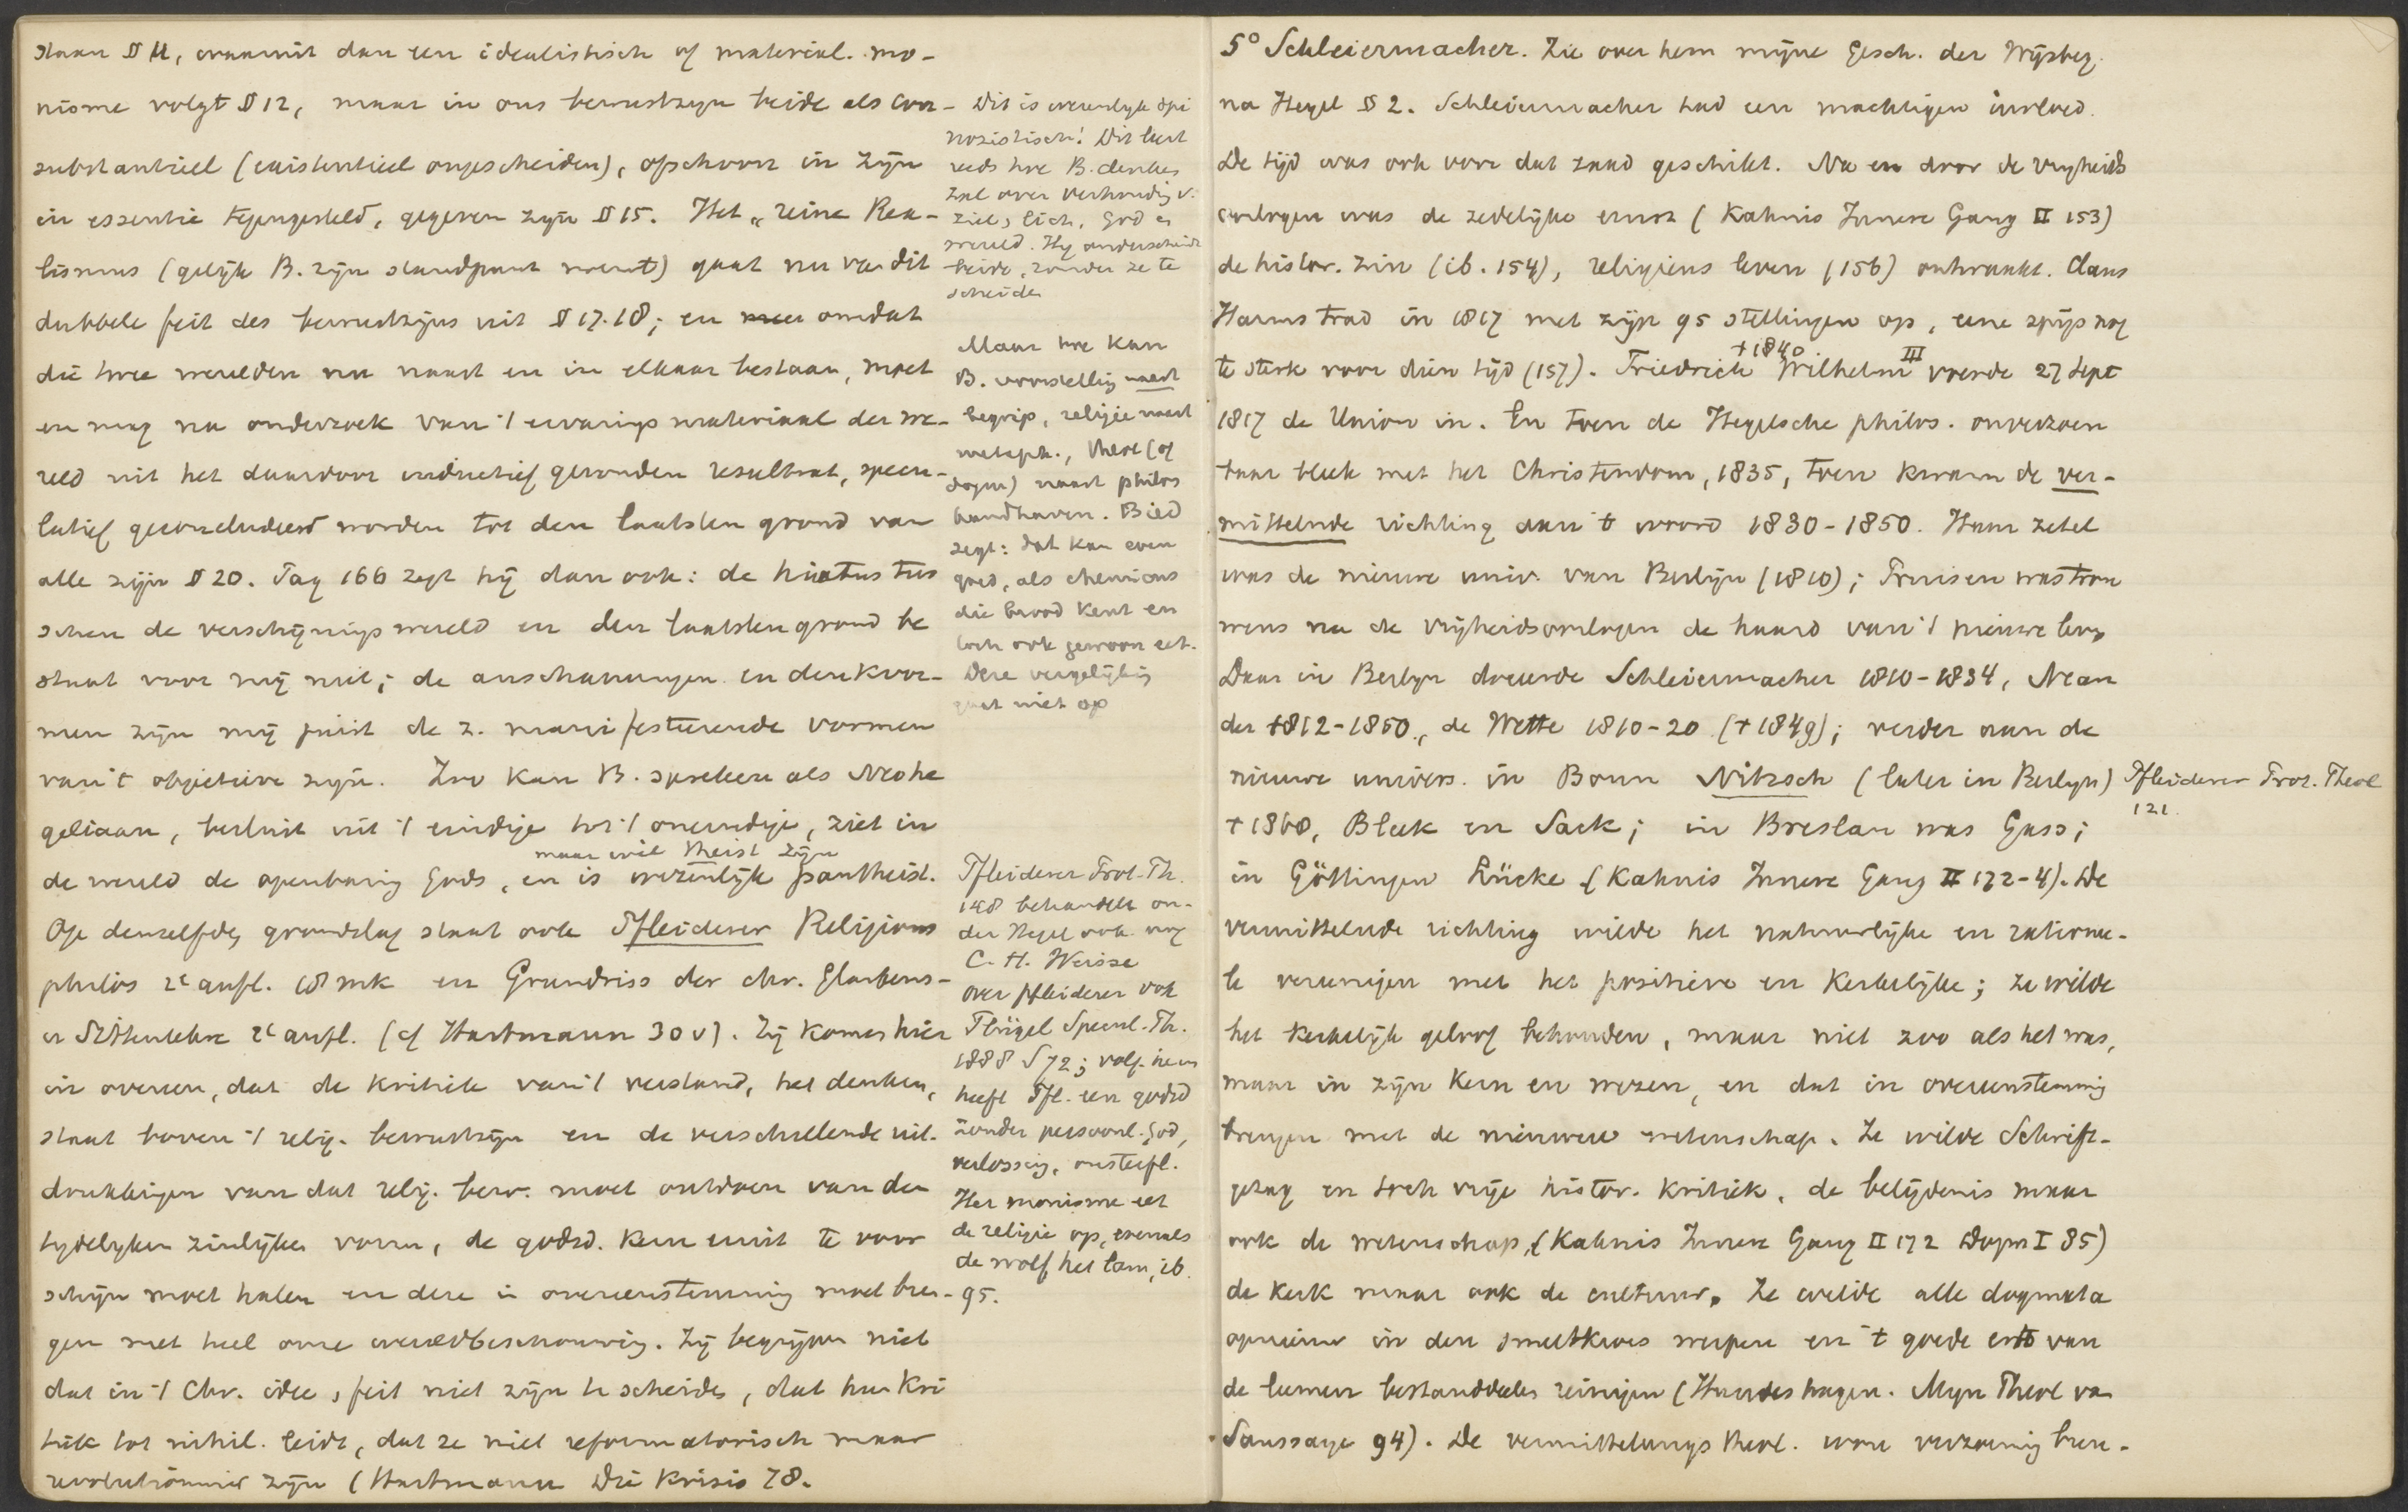 staan § 11, waaruit dan een idealistisch of material. mo-
nisme volgt § 12, maar in ons bewustzijn beide als con-
substantieel (existentieel ongescheiden), ofschoon in zijn
en essentie tegengesteld, gegeven zijn § 15. Het „reine Rea-
lismus (gelijk B. zijn standpunt noemt) gaat nu van dit
dubbele feit des bewustzijns uit § 17.18; en omdat
die twee werelden nu naast en in elkaar bestaan, moet
en mag na onderzoek van 't ervaringsmateriaal der we-
reld uit het daardoor inductief gevonden resultaat, specu-
latief geconcludeerd worden tot den laatsten grond van
alle zijn § 20. Pag 166 zegt hij dan ook: de hiatus tus
schen de verschijningswereld en den laatsten grond be
staat voor mij niet; de anschauungen en denkvor-
men zijn mij juist de z. manifesteerende vormen
van 't objectieve zijn. Zoo kan B. spreken als Neohe
geliaan, besluit uit 't eindige tot 't oneindige, ziet in
maar wil theist zijn
de wereld de openbaring Gods, en is wezenlijk pantheist.
Op denzelfden grondslag staat ook Pfleiderer Religions
philos 2e aufl. en Grundriss der chr. Glaubens-
u Sittenlehre 2e aufl. (cf Hartmann 30 v). Zij komen hier
in overeen, dat de kritiek van 't verstand, het denken,
staat boven 't relig. bewustzijn en de verschillende uit-
drukkingen van dat relig. bew. moet ontdoen van den
tydelyken zinlijken vorm, de godsd. kern eruit te voor
schijn moet halen en deze in overeenstemming moet bren-
gen met heel onze wereldbeschouwing. Zij begrijpen niet
dat in 't Chr. idee, feit niet zijn te scheiden, dat hun kri
tiek tot nihil. leidt, dat ze niet reformatorisch maar
revolutionair zijn (Hartmann Die Krisis 78.
Dit is eigenlyk spi
nozistisch! Dit leert
reeds hoe B. denken
zal over verhouding v.
ziel, lich. God en
wereld. Hij onderscheidt
beide, zonder ze te
scheiden
Maar hoe kan
B. voorstelling naast
begrip, religie naast
metaph., theol (of
dogm) naast philos
handhaven. Bied
zegt: dat kan even
goed, als chemicus
die brood kent en
toch ook gewoon eet.
Deze vergelijking
gaat niet op
Pfleiderer Prot. Th.
148 behandelt on-
der Hegel ook nog
C. H. Weisse
over Pfleiderer ook
Flügel Specul. Th.
1888 S 72; volg. hem
heeft Pfl. een godsd
zonder persoonl. God,
verlossing, onsterfl.
Het monisme eet
de religie op, evenals
de wolf het lam, ib.
95.
5° Schleiermacher. Zie over hem mijne Gesch. der Wijsbeg.
na Hegel § 2. Schleiermacher had een machtigen invloed.
De tijd was ook voor dat zaad geschikt. Na en door de vryheids
oorlogen was de zedelijke ernst (Kahnis Innere Gang II 153)
de histor. zin (ib. 154), religieus leven (156) ontwaakt. Claus
Harms trad in 1817 met zijn 95 stellingen op, eene spijs nog
te sterk voor dien tijd (157). Friedrich Wilhelm III † 1840 voerde 27 Sept
1817 de Union in. En toen de Hegelsche philos. onverzoen
baar bleek met het Christendom, 1835, toen kwam de ver-
mittelnde richting aan 't woord 1830-1850. Haar zetel
was de nieuwe univ. van Berlijn (1810); Pruisen was trou
wens na de vrijheidsoorlogen de haard van 't nieuwe leven
Daar in Berlyn doceerde Schleiermacher 1810-1834, Nean
der 1812-1850, de Wette 1810-20 († 1849); verder aan de
nieuwe univers. in Bonn Nitzsch (later in Berlyn)
† 1860, Bleek en Sack; in Breslau was Gass;
in Göttingen Lücke (Kahnis Innere Gang II 172-4). De
vermittelnde richting wilde het natuurlijke en rationee-
le vereenigen met het positieve en kerkelijke; ze wilde
het kerkelijk geloof behouden, maar niet zoo als het was,
maar in zijn kern en wezen, en dat in overeenstemming
brengen met de nieuwere wetenschap. Ze wilde Schrift-
gezag en toch vrije histor. kritiek, de belijdenis maar
ook de wetenschap, (Kahnis Innere Gang II 172 Dogm I 85)
de kerk maar ook de cultuur. Ze wilde alle dogmata
opnieuw in den smeltkroes werpen en 't goede erts van
de leemen bestanddeelen reinigen (Hundeshagen. Mijn Theol van
Saussaye 94). De vermittelungstheol. wou verzoening bren-
Pfleiderer Prot. Theol
121.